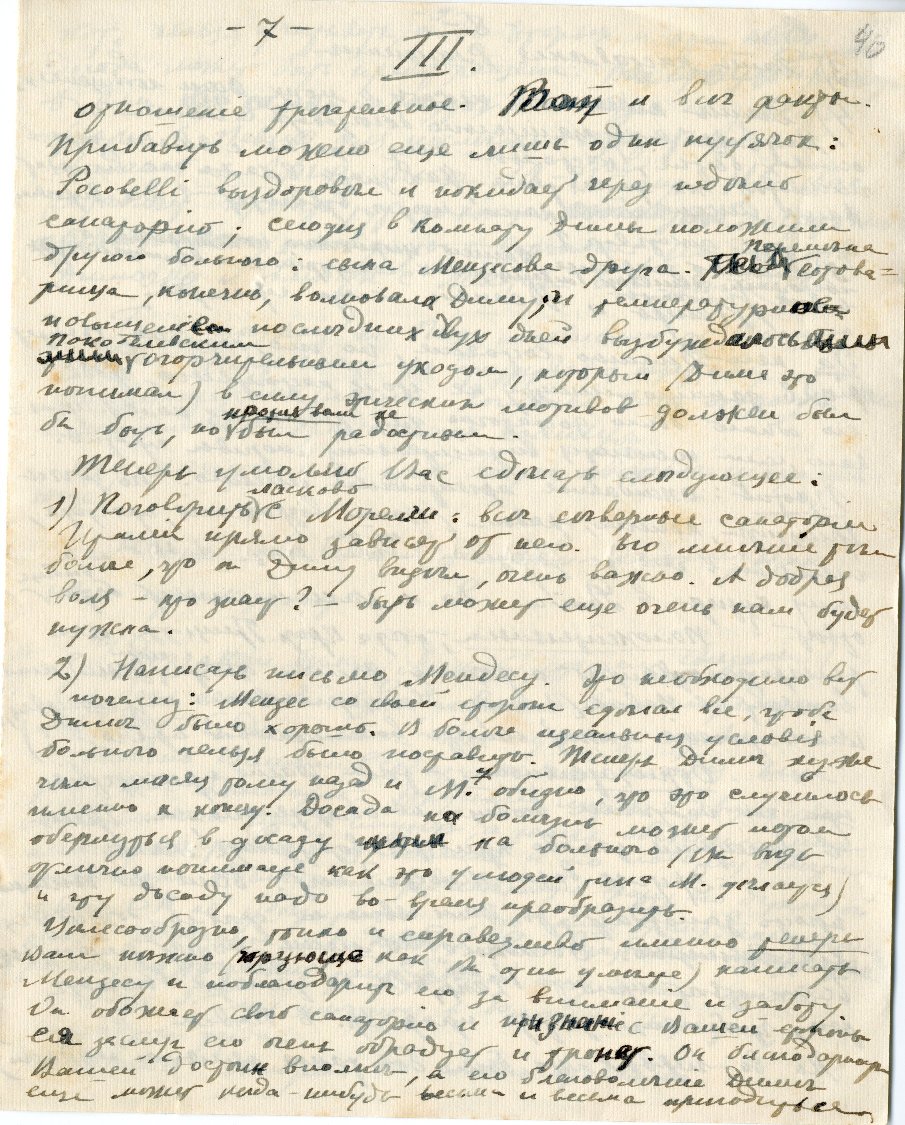 – 7 –
40
III.
отношеніе трогательное. Вот и всѣ факты.
Прибавить можно еще лишь один пустячок:
Росоvelli выздоровѣл и покидает через недѣлю
санаторію; сегодня в комнату Димы положили
другого больного: сына Мендесова друга. Перемѣна сотова-
рища, конечно, волновала Диму, и температурно
повышеніе послѣдних двух дней
огорчительным уходом, который (Дима это
понимал) в силу этических мотивов должен был
бы быть, но не был радостным.
Теперь умоляю Вас сдѣлать слѣдующее:
1) Поговорить ласково с Морелли: всѣ сѣверные санаторіи
Италіи прямо зависят от него. Его мнѣніе тѣм
болѣе, что он Диму видѣл, очень важно. А добрая
воля – кто знает? – быть может еще очень нам будет
нужна.
2) Написать письмо Мендесу. Это необходимо вот
почему: Мендес со своей стороны сдѣлал все, чтобы
Димѣ было хорошо. В болѣе идеальныя условія
больного нельзя было поставить. Теперь Димѣ хуже
чѣм мѣсяц тому назад и М. обидно, что это случилось
именно к концу. Досада на болѣзнь может потом
обернуться в досаду на больного (Вы вѣдь
отлично понимаете как это у людей типа М. дѣлается)
и эту досаду надо во-время преобразить.
Цѣлесообразно, тонко и справедливо именно теперь
Вам нужно (как Вы одни умѣете) написать
Мендесу и поблагодарить его за вниманіе и заботу.
Он обожает свою санаторію и признаніе с Вашей стороны
ея заслуг его очень обрадует и тронет. Он благодарность
Вашей вполнѣ, а его благоволѣніе Димѣ
еще может когда-нибудь весьма и весьма пригодиться.